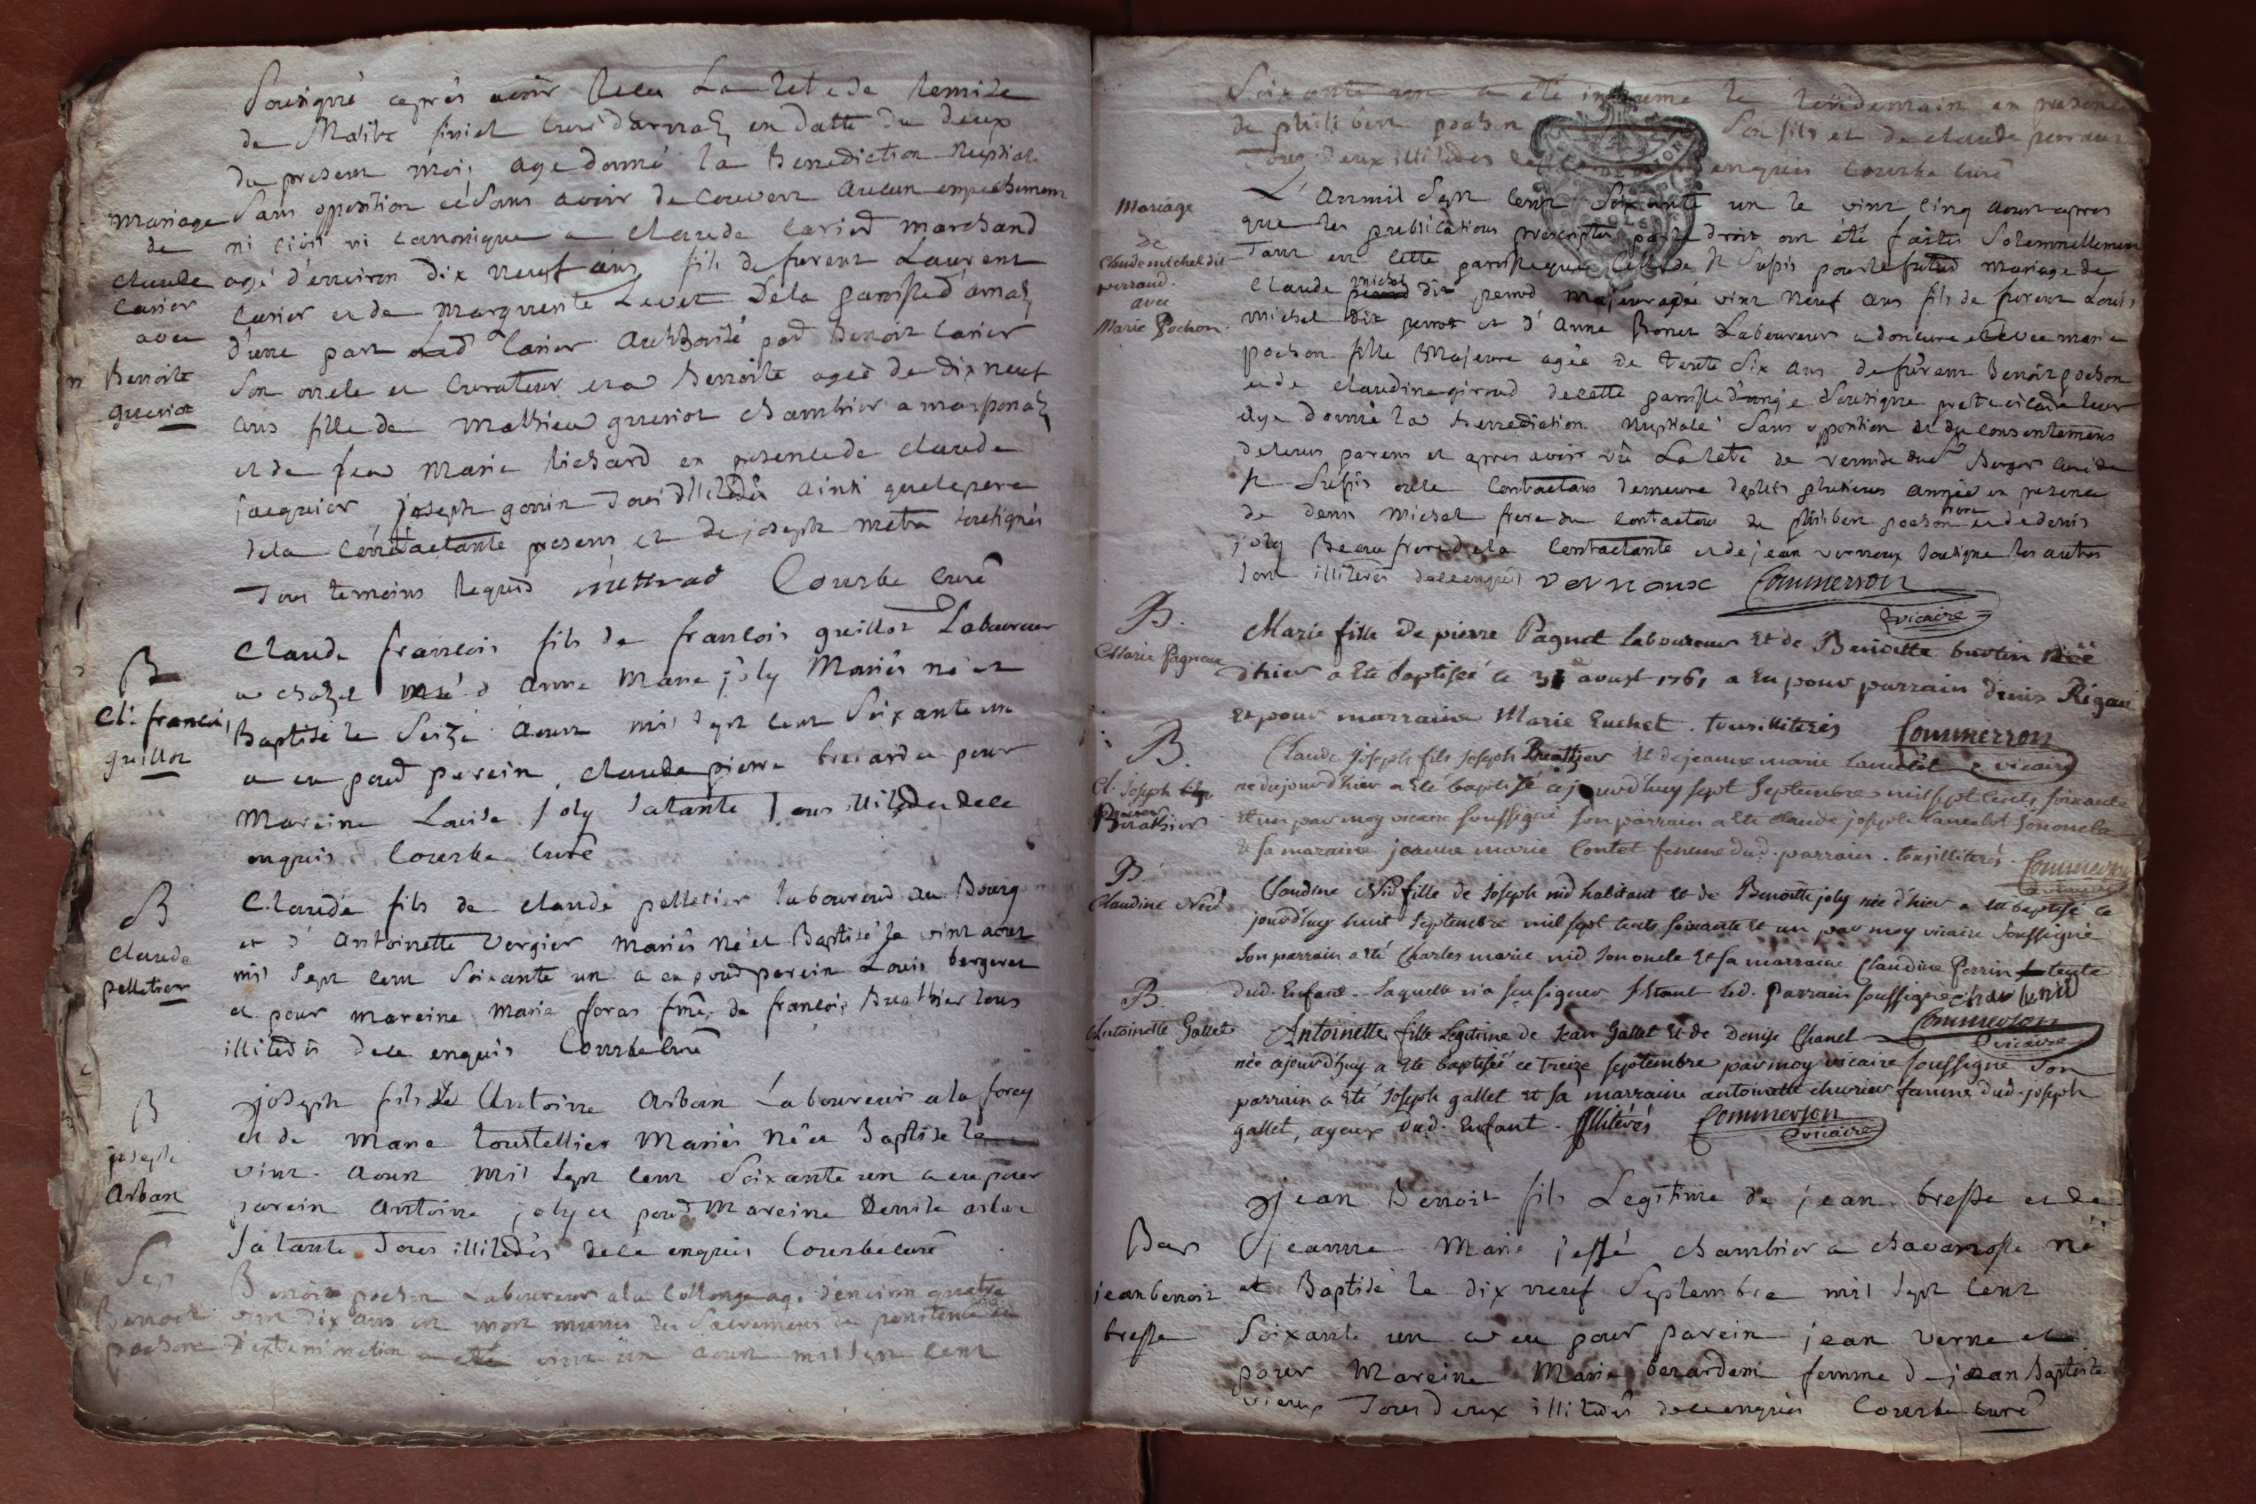 Sousigné après avoir Receu La lettre de Remise
de Matire curé d'arnaz en datte du deux
du present mois ay donné la Benediction Nuptiale
Sans opposition et Sans avoir decouvert aucun empechement
ni civil ni canonique a claude carier marchand
agé d'environ dix neuf ans fils de furent Laurent
carier et de marguerite Levet de la paroisse d'arnaz
d'une part Led carier authorisé par Benoit carier
Son oncle et curateur et a Benoite agée de dix neuf
ans fille de mathieu gueriot chambrier a marsonaz
et de feu marie Richard en presence de claude
jacquier joseph gonin Tous illiterés ainsi que le pere
de la contractante presens et de joseph metra sousignés
Tous temoins Requis mettrad Courbe curé
mariage
de
claude
carier
avec
Benoite
gueriot
claude francois fils de francois guillot Laboureur
a chazel et d'anne marie joly Mariés né et
Baptisé le Seize aoust mil sept cent Soixante un
a eu pour parein claude pierre brevard et pour
mareine Louise joly Sa tante Tous illiterés de ce
enquis Courbe curé
B
cl. francois
guillot
Claude fils de claude pelletier laboureur du Bourg
et d'Antoinette Vergier mariés né et Baptisé le vint aout
mil sept cent Soixante un a eu pour parein Louis bergeret
et pour mareine marie foras fme de francois Buathier tous
illiterés de ce enquis Courbe curé
B
claude
pelletier
joseph fils de Antoine arban Laboureur a la forey
et de marie toustellier mariés né et Baptisé le
vint aoust mil sept cent Soixante un a eu pour
parein Antoine joly et pour Mareine Denise arban
Sa tante Tous illiterés de ce enquis Courbe curé
B
joseph
arban
Benoit pochon Laboureur a la Collonge agé d'environ quatre
vint dix ans est mort munis des Sacremens de penitence et
D'extreme onction vint un aoust mil sept cent
Sep
Benoit
pochon
Soixante un a été inhumé le lendemain en presence
de philibert pochon Son fils et de claude perraud
Tous deux illiterés enquis Courbe curé
L'an mil Sept cent Soixante un le vint cinq aoust apres
que les publications prescriptes par le droit ont été faites Solemnellement
Tant en cette paroisse que celle de St Sulpis pour le futur mariage de
claude michel dit perrod majeur agé vint neuf ans fils de furent Louis
michel dit perrot et d'Anne Bonet Laboureur a doncure et avec marie
pochon fille Majeure agée de trente Six ans de furent Benoit pochon
et de claudine giroud de cette paroisse d'une je sousigné pretre vicaire leur
ay donné la Benediction nuptiale Sans opposition et du consentement
de leurs parens et apres avoir vû La lettre de remise du Sr Berger curé de
St Sulpis ou le contractans demeure depuis plusieurs années en presence
de denis michel frere du contractant de philibert pochon frere et de denis
joly Beau frere de la contractante et de jean verneux sousigné les autres
sont illiterés de ce enquis vernoux Commerson
vicaire
mariage
de
claude michel dit
perraud.
avec
Marie Pochon.
Marie fille de pierre Pagnet laboureur et de Benoitte buotin née
d'hier a été baptisée le 31e aoust 1761 a eu pour parrain denis Rigaud
et pour marraine Marie Euchet. tous illiterés Commerson
vicaire
B.
Marie Pagneau
Claude joseph fils joseph Buathier et de jeanne marie Lancelot
né du jourd'hier a été baptisé ajourd'huy sept Septembre mil sept cents soixante
et un par moy vicaire soussigné son parrain a été claude joseph Lancelot son oncle
et sa maraine jeanne marie Contet femme dud. parrain. tous illiterés. Commerson
B.
cl. joseph
Buathier
Claudine Nid fille de joseph nid habitant et de Benoitte joly née d'hier a été baptisée ce
jourd'huy huit Septembre mil sept cents soixante et un par moy vicaire soussigné
Son parrain a été Charles marie nid son oncle et sa marraine Claudine Perrin tente
dud. Enfant. Laquelle n'a sçu signer Etant led. Parrain soussigné char lenid
Commerson
vicaire
B
Claudine Nid
Antoinette fille Legitime de Jean Gallet et de Denise Chanel
née ajourd'huy a été baptisée ce Treize septembre par moy vicaire soussigné Son
parrain a été joseph gallet et sa marraine antoinette chevrier femme dud. joseph
gallet, ayeux dud. Enfant. Illiterés Commerson
vicaire
B.
Antoinette Gallet
jean Benoit fils Legitime de jean bresse et de
jeanne Marie jessé chambrier a chavanosse né
et Baptisé le dix neuf Septembre mil sept cent
Soixante un a eu pour parein jean verne et
pour Mareine Marie berardem femme de jean Baptiste
vieux Tous deux illiterés de ce enquis Courbe curé
Bas
jean benoit
bresse